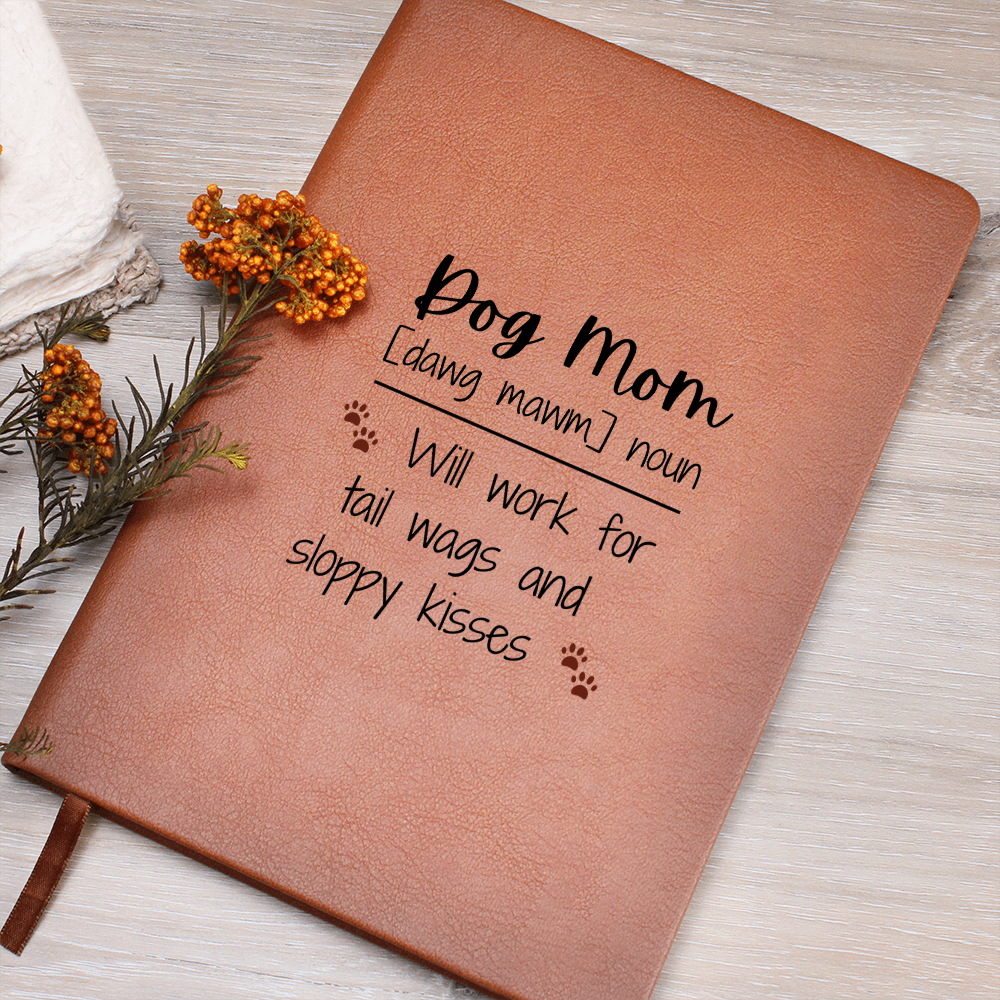 Dog Mom
[dawg mawm] noun
Will work for
tail wags and
sloppy kisses